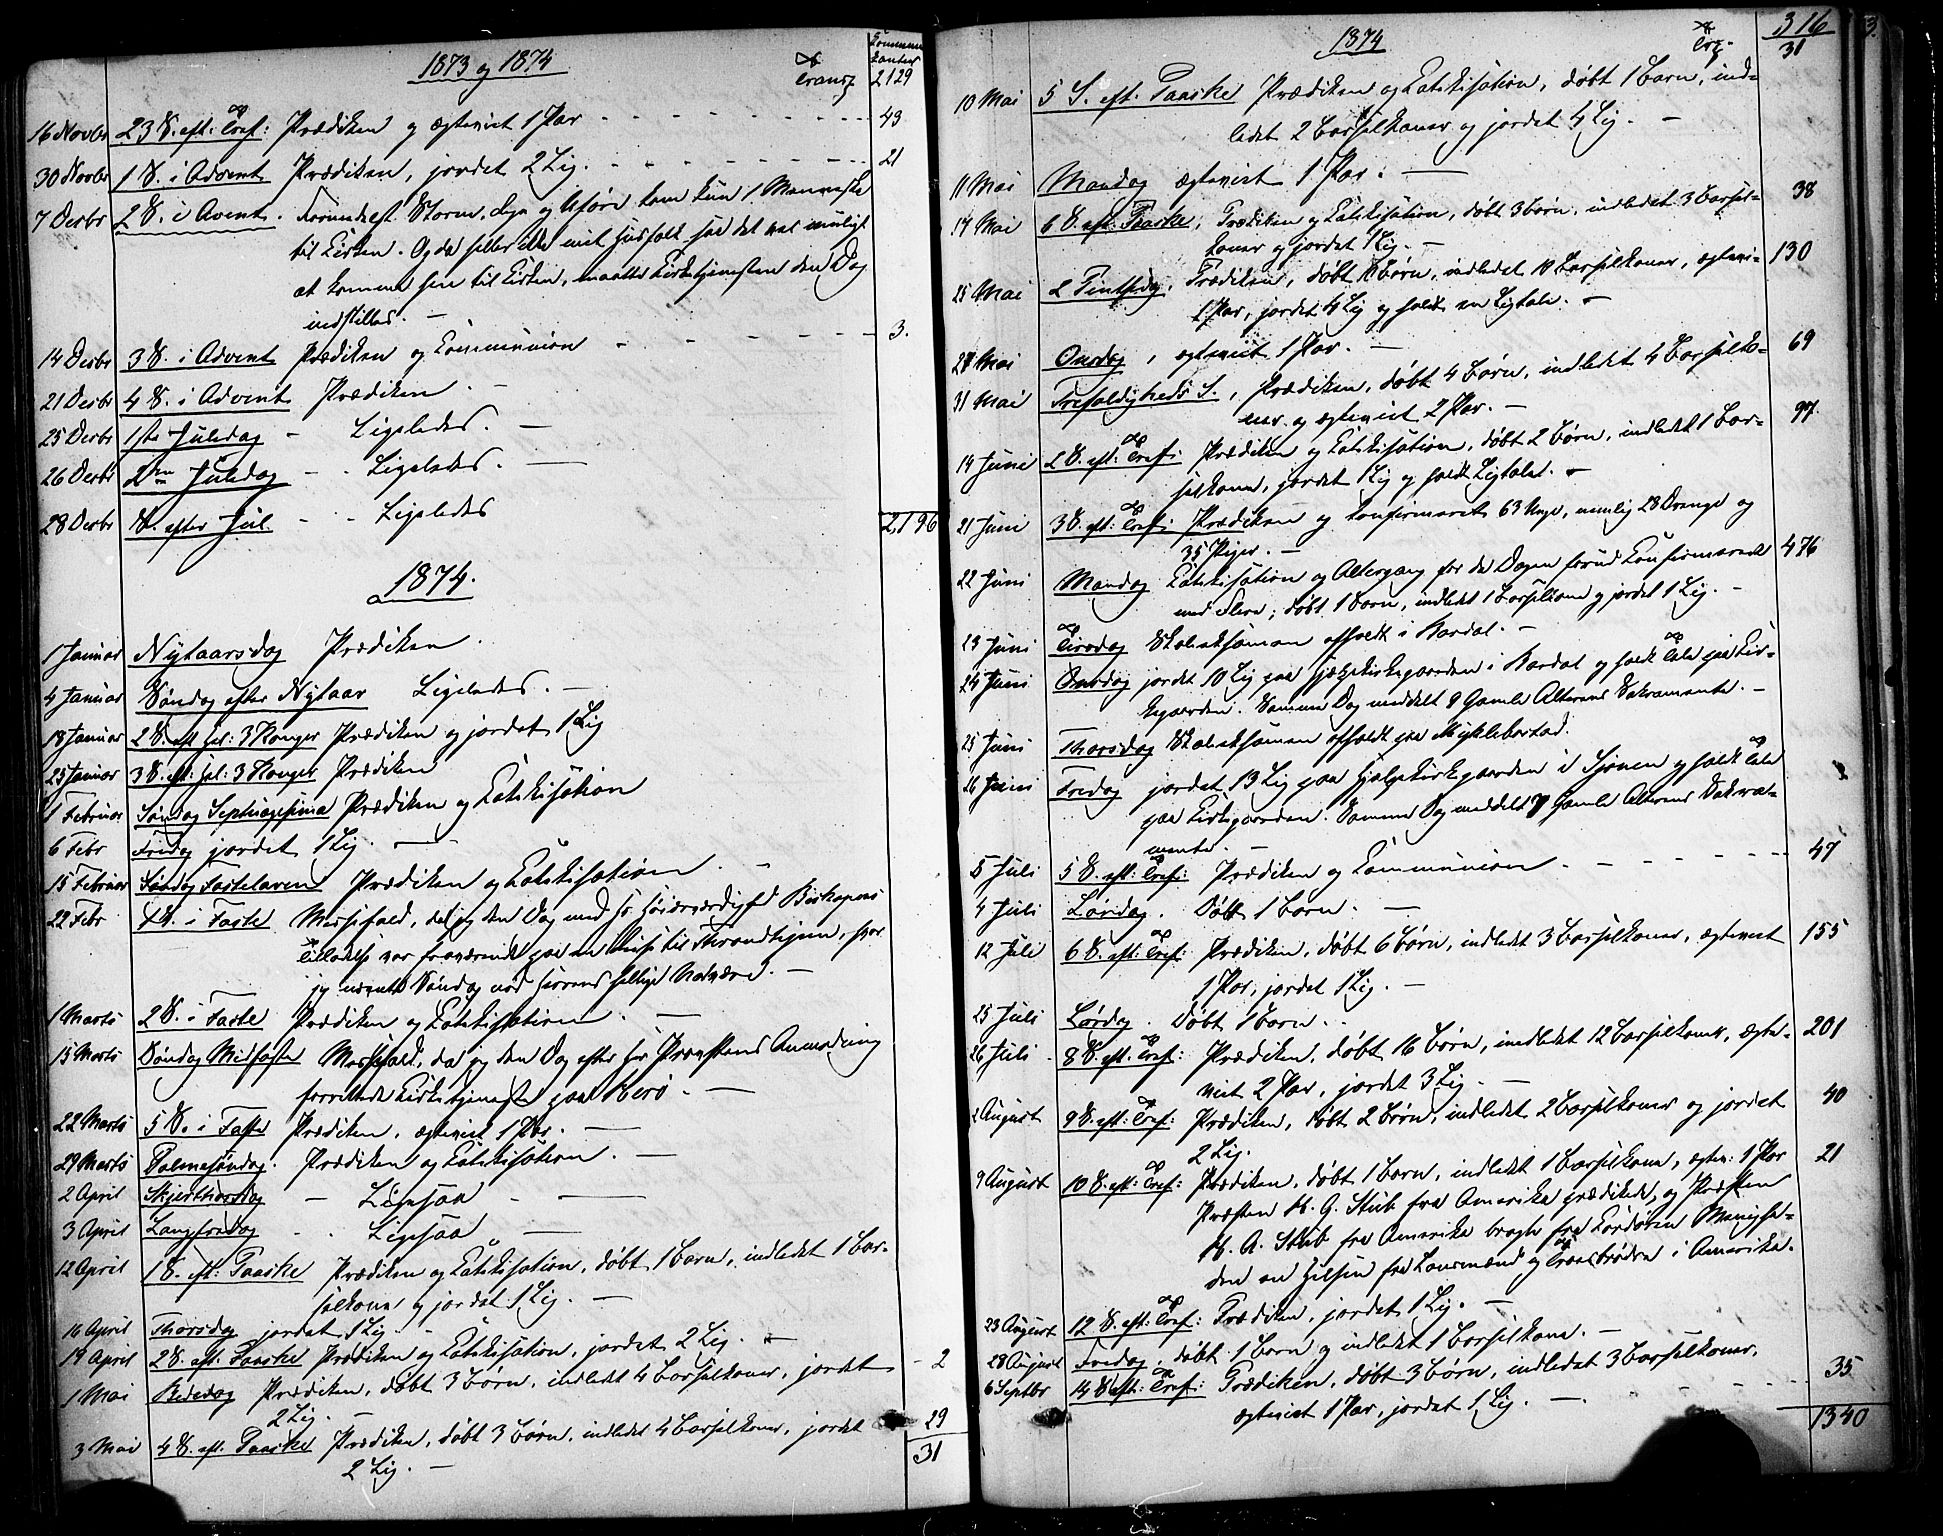 1873 og 1874
Transp
Commun
kanter
2129
16 Novbr 23 S. eft: Tref: Prædiken og ægteviet 1 Par 43
30 Novbr 1 S. i Advent Prædiken, jordet 2 Lig. 21
7 Decbr 2 S. i Avent. Formedelst Storm, Regn og Uføre kom kun 1 Menneske
til Kirken. Og da heller ikke mit Huusfolk saa det var muligt
at komme hen til Kirken, maatte Kirketjenesten den Dag
indstilles.
14 Decbr 3 S. i Advent Prædiken og Communion 3.
21 Decbr 4 S. i Advent Prædiken
25 Decbr 1ste Juledag Ligeledes.
26 Decbr 2den Juledag Ligeledes.
28 Decbr S. efter Jul. Ligeledes 2196
1874.
1 Januar Nytaarsdag Prædiken
4 Januar Søndag efter Nytaar Ligeledes.
18 Januar 2 S. eft hel: 3 Konger Prædiken og jordet 1 Lig
25 Januar 3 S. eft: hel: 3 Konger Prædiken
1 Februar Søndag Septuagesima Prædiken og Katekisation
6 Febr Fredag jordet 1 Lig.
15 Februar Søndag Fastelaven Prædiken og Katekisation
22 Febr 1 S. i Faste Messefald, da jeg den Dag med Hr. Høiærværdighed Biskopens
Tilladelse var fraværende paa en Reise til Throndhjem, hvor
jeg nævnte Søndag nød Herrens hellige Nadvere.
1 Marts 2 S. i Faste Prædiken og Katekisation.
15 Marts Søndag Midfaste Messefald, da jeg den Dag efter Hr Provstens Anmodning
forrettede Kirketjeneste paa Herø.
22 Marts 5 S. i Faste Prædiken, ægteviet 1 Par.
29 Marts Palmesøndag. Prædiken og Katekisation.
2 April Skjærthorsdag Ligesaa
3 April Langfredag Ligesaa
12 April 1 S. eft: Paaske Prædiken og Katekisation, døbt 1 Barn, indledet 1 Bar-
selkone og jordet 1 Lig.
16 April Thorsdag jordet 1 Lig.
19 April 2 S. eft: Paaske Prædiken og Katekisation, jordet 2 Lig.
1 Mai Bededag Prædiken, døbt 3 Børn, indledet 4 Barselkoner, jordet 2
2 Lig.
3 Mai 4 S. eft. Paaske Prædiken, døbt 3 Børn, indledet 4 Barselkoner, jordet 29
2 Lig. 31
1874
Trsp. 316
31
10 Mai 5 S. eft. Paaske Prædiken og Katekisation, døbt 1 Barn, ind-
ledet 2 Barselkoner og jordet 4 Lig.
11 Mai Mandag ægteviet 1 Par.
14 Mai 6 S. eft. Paaske, Prædiken og Katekisation, døbt 3 Børn, indledet 3 Barsel- 38
koner og jordet 1 Lig.
25 Mai 2 Pintsedag. Prædiken, døbt 10 Børn, indledet 10 Barselkoner, ægtevi- 130
1 Par, jordet 4 Lig og holdt en Ligtale.
28 Mai Onsdag, ægteviet 1 Par.
31 Mai Trefoldigheds S., Prædiken, døbt 4 Børn, indledet 4 Barselko- 69
ner og ægteviet 2 Par.
14 Juni 2 S. eft. Tref: Prædiken og Katekisation, døbt 2 Børn, indledet 1 Bar- 97
selkone, jordet 1 Lig og holdt Ligtale.
21 Juni 3 S. eft: Tref: Prædiken og konfirmeret 63 Unge, nemlig 28 Drenge og
35 Piger.
22 Juni Mandag Katekisation og Altergang for de Dagen forud Konfirmerede 476
med Flere, døbt 1 Barn, indledet 1 Barselkone og jordet 1 Lig.
23 Juni Tirsdag Skoleeksamen afholdt i Bardal.
24 Juni Onsdag jordet 10 Lig paa Hjælpekirkegaarden i Bardal og holdt Tale paa Kir-
kegaarden. Samme Dag meddelt 9 Gamle Alterens Sakramente.
25 Juni Thorsdag Skoleeksamen afholdt paa Myklebostad.
26 Juni Fredag jordet 13 Lig paa Hjælpekirkegaarden i Sjonen og holdt Tale
paa Kirkegaarden. Samme Dag meddelt 7 Gamle Alterens Sakra-
mente.
5 Juli 5 S. eft: Tref: Prædiken og Communion 47
4 Juli Lørdag. Døbt 1 Barn.
12 Juli 6 S. eft: Tref: Prædiken, døbt 6 Børn, indledet 3 Barselkoner, ægteviet 155
1 Par, jordet 1 Lig.
25 Juli Lørdag. Døbt 1 Barn.
26 Juli 8 S. eft. Tref: Prædiken, døbt 16 Børn, indledet 12 Barselkoner, ægte- 201
viet 2 Par, jordet 3 Lig.
2 August 9 S. eft: Tref: Prædiken, døbt 2 Børn, indledet 2 Barselkoner og jordet 40
2 Lig.
9 August 10 S. eft: Tref: Prædiken, døbt 1 Barn, indledet 1 Barselkone, ægtev: 1 Par 21
Præsten H. G. Stub fra Amerika prædikede, og Præsten
H. A. Stub fra Amerika bragte fra Kordøren Menighe-
den en Hilsen fra Landsmænd og Troesbrødre i Amerika.
23 August 12 S. eft: Tref: Prædiken, jordet 1 Lig.
28 August Fredag. døbt 1 Barn og indledet 1 Barselkone.
6 Septbr 14 S. eft: Tref: Prædiken, døbt 3 Børn, indledet 3 Barselkoner, 35
ægteviet 1 Par, jordet 1 Lig. 1340